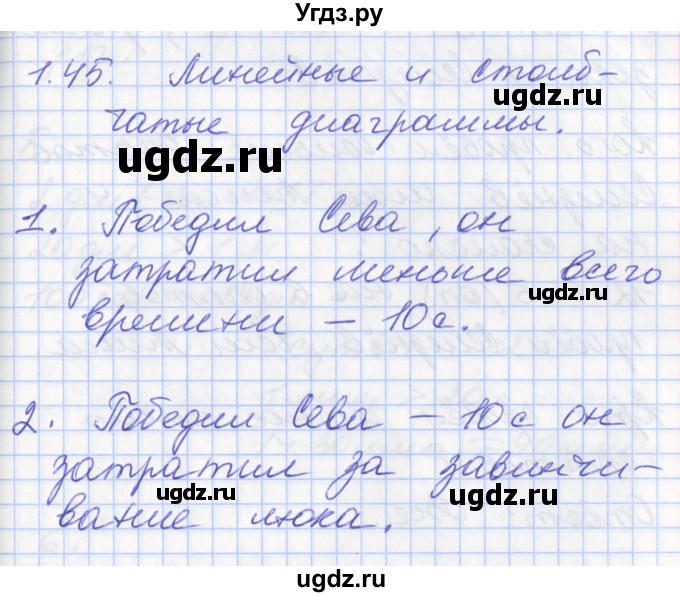 Угдз.ру
1.45. Линейные и столб-
ugdz.ru
чатые диаграммы.
ugdz.ru
1. Победил Сева, он
затратил меньше всего
ugdz.ru
времени – 10с.
2. Победил Сева – 10с он
затратил за завинчи-
ugdz.ru ugdz.ru
вание люка.
ugdz.ru